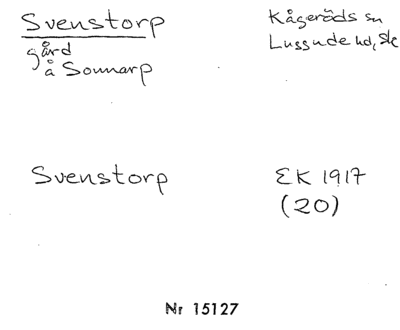 Svenstorp
gård
å Sonnarp
Kågeröds sn
Luggude hd, Sk
Svenstorp
EK 1917
(20)
Nr 15127